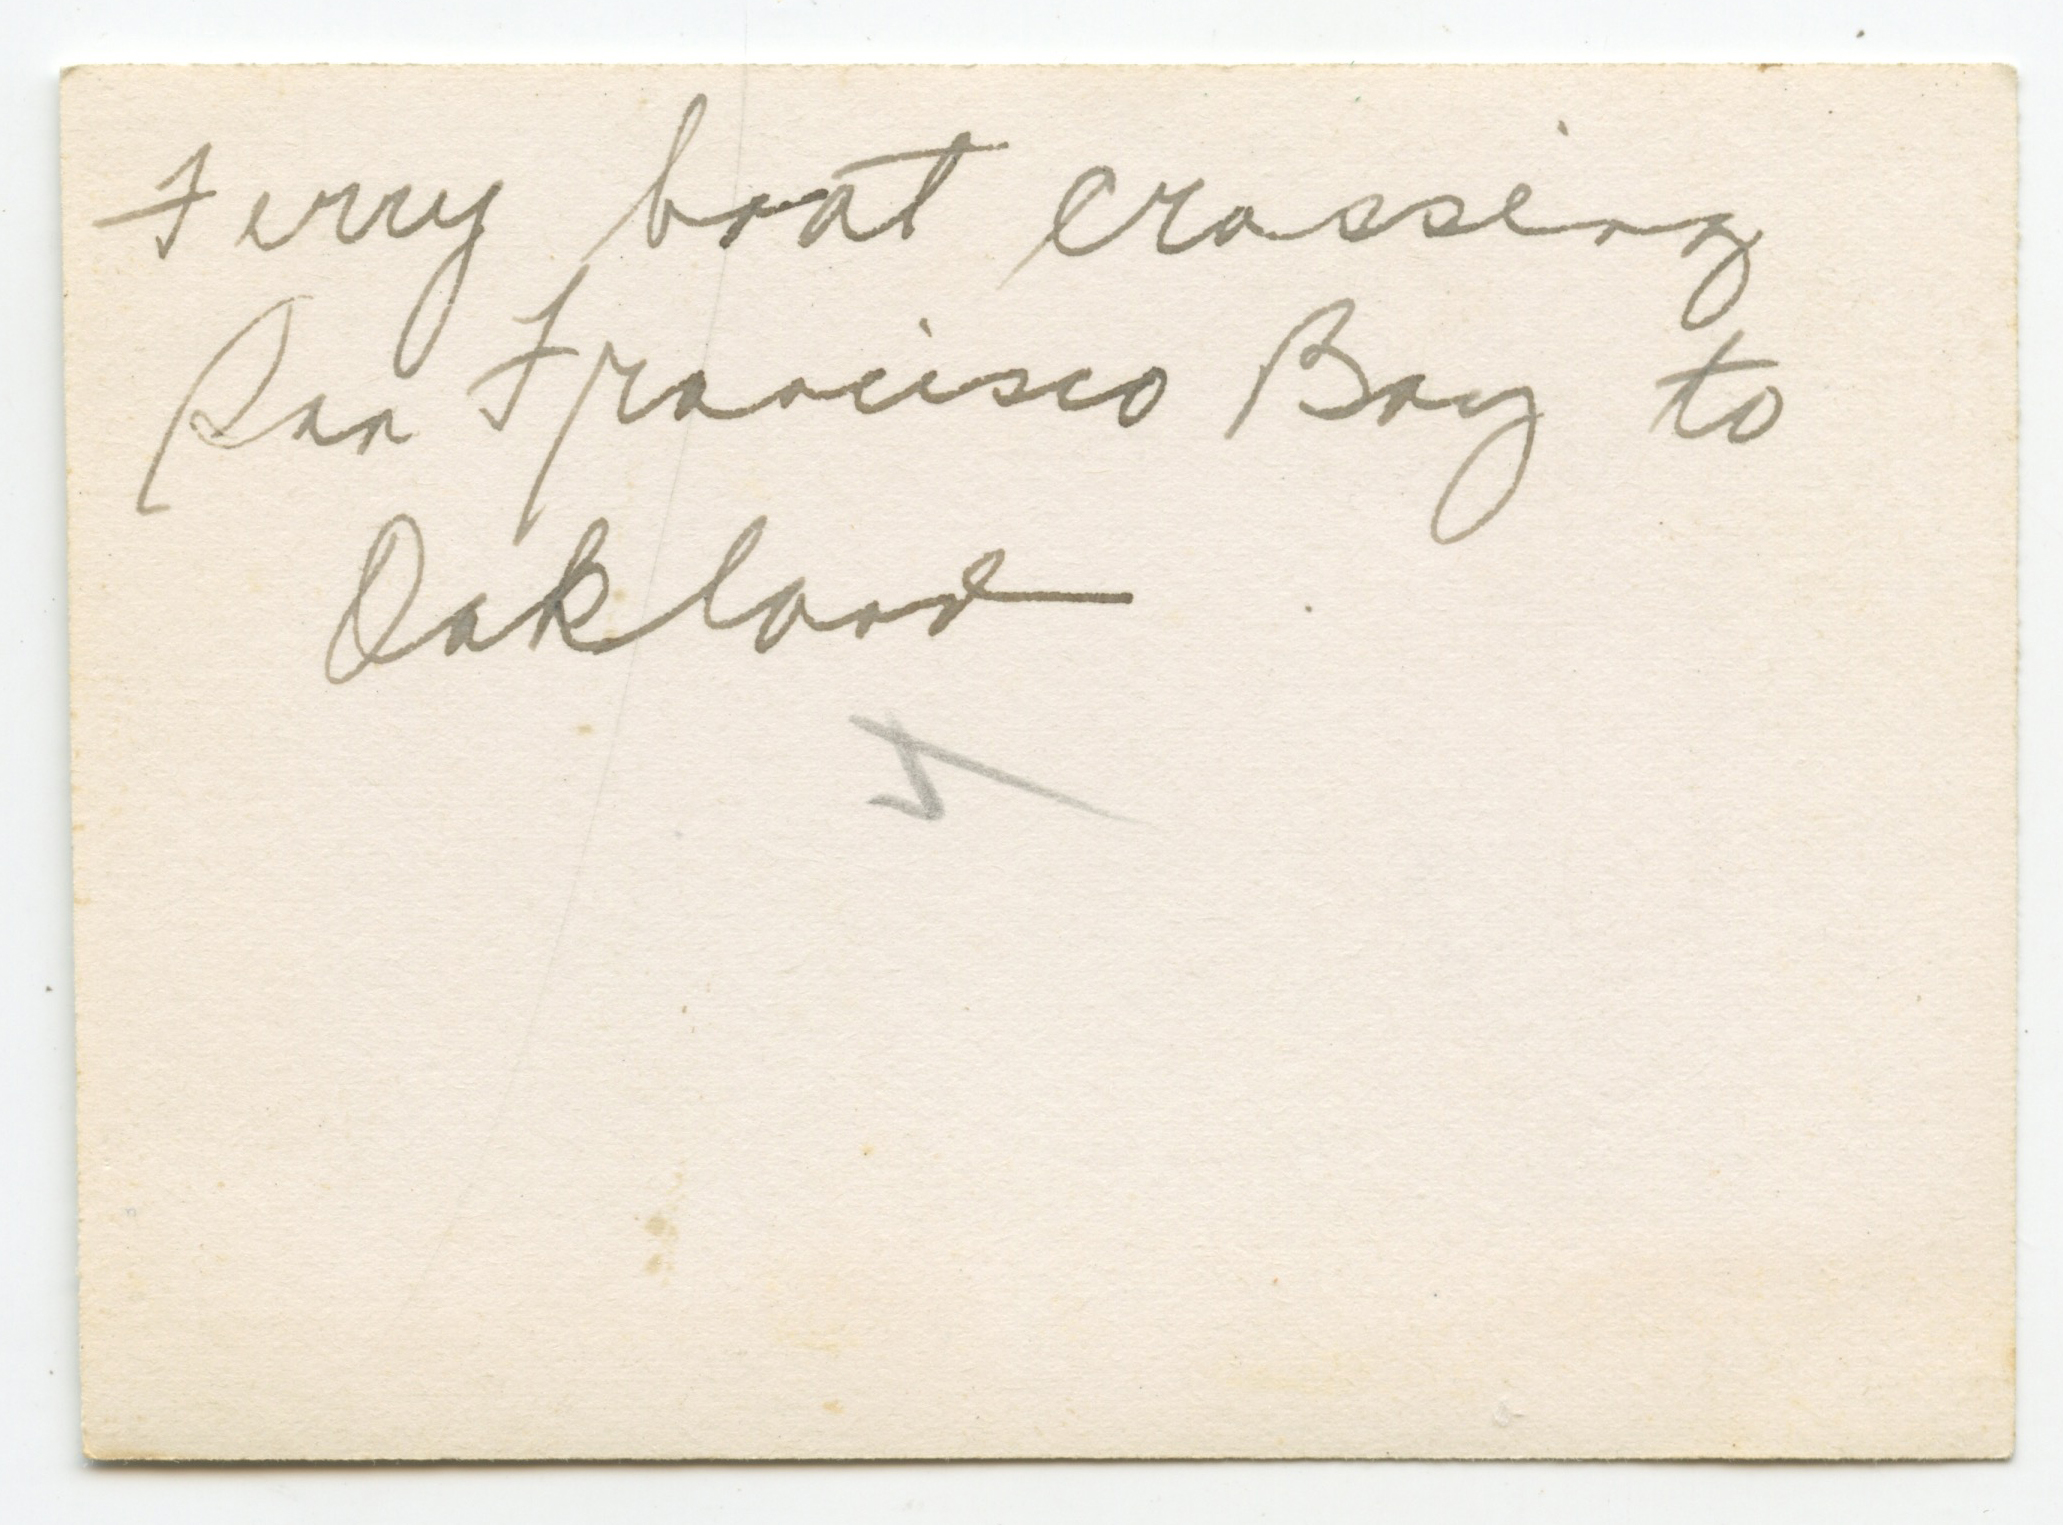 Ferry boat crossing
San Francisco Bay to
Oakland